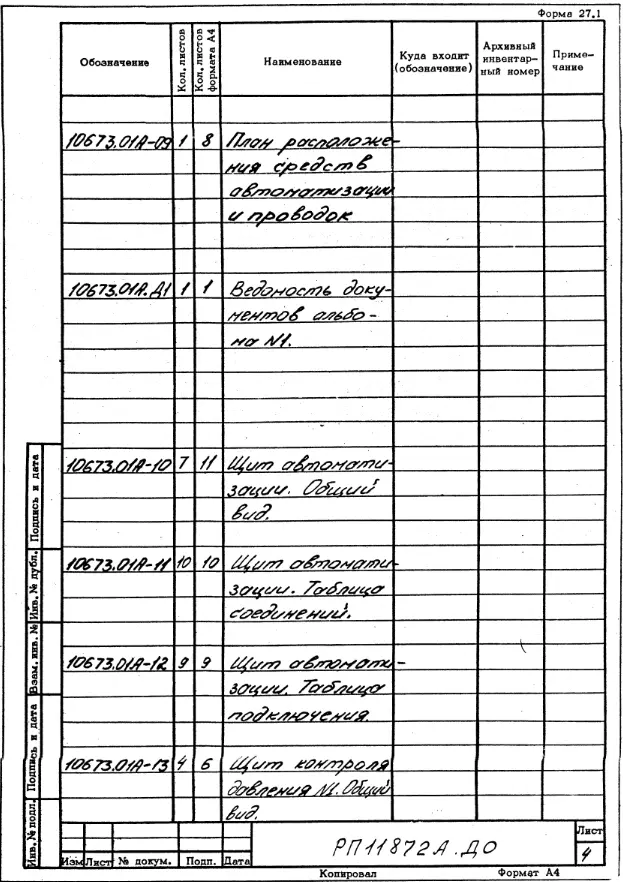 Форма 27.1
Обозначение
Кол. листов
Кол. листов формата А4
Наименование
Куда входит (обозначение)
Архивный инвентарный номер
Примечание
10673.01А-09 1 8 План расположе-
ния средств
автоматизации
и проводок
10673.01А.Д1 1 1 Ведомость доку-
ментов альбо-
ма N1.
10673.01А-10 7 11 Щит автомати-
зации. Общий
вид.
10673.01А-11 10 10 Щит автомати-
зации. Таблица
соединений.
10673.01А-12 9 9 Щит автомати-
зации. Таблица
подключения.
10673.01А-13 4 6 Щит контроля
давления N1. Общий
вид.
Подпись и дата
Инв. № дубл.
Взам. инв. №
Подпись и дата
Инв. № подл.
Изм Лист № докум. Подп. Дата
РП11872А.ДО
Лист
4
Копировал Формат А4